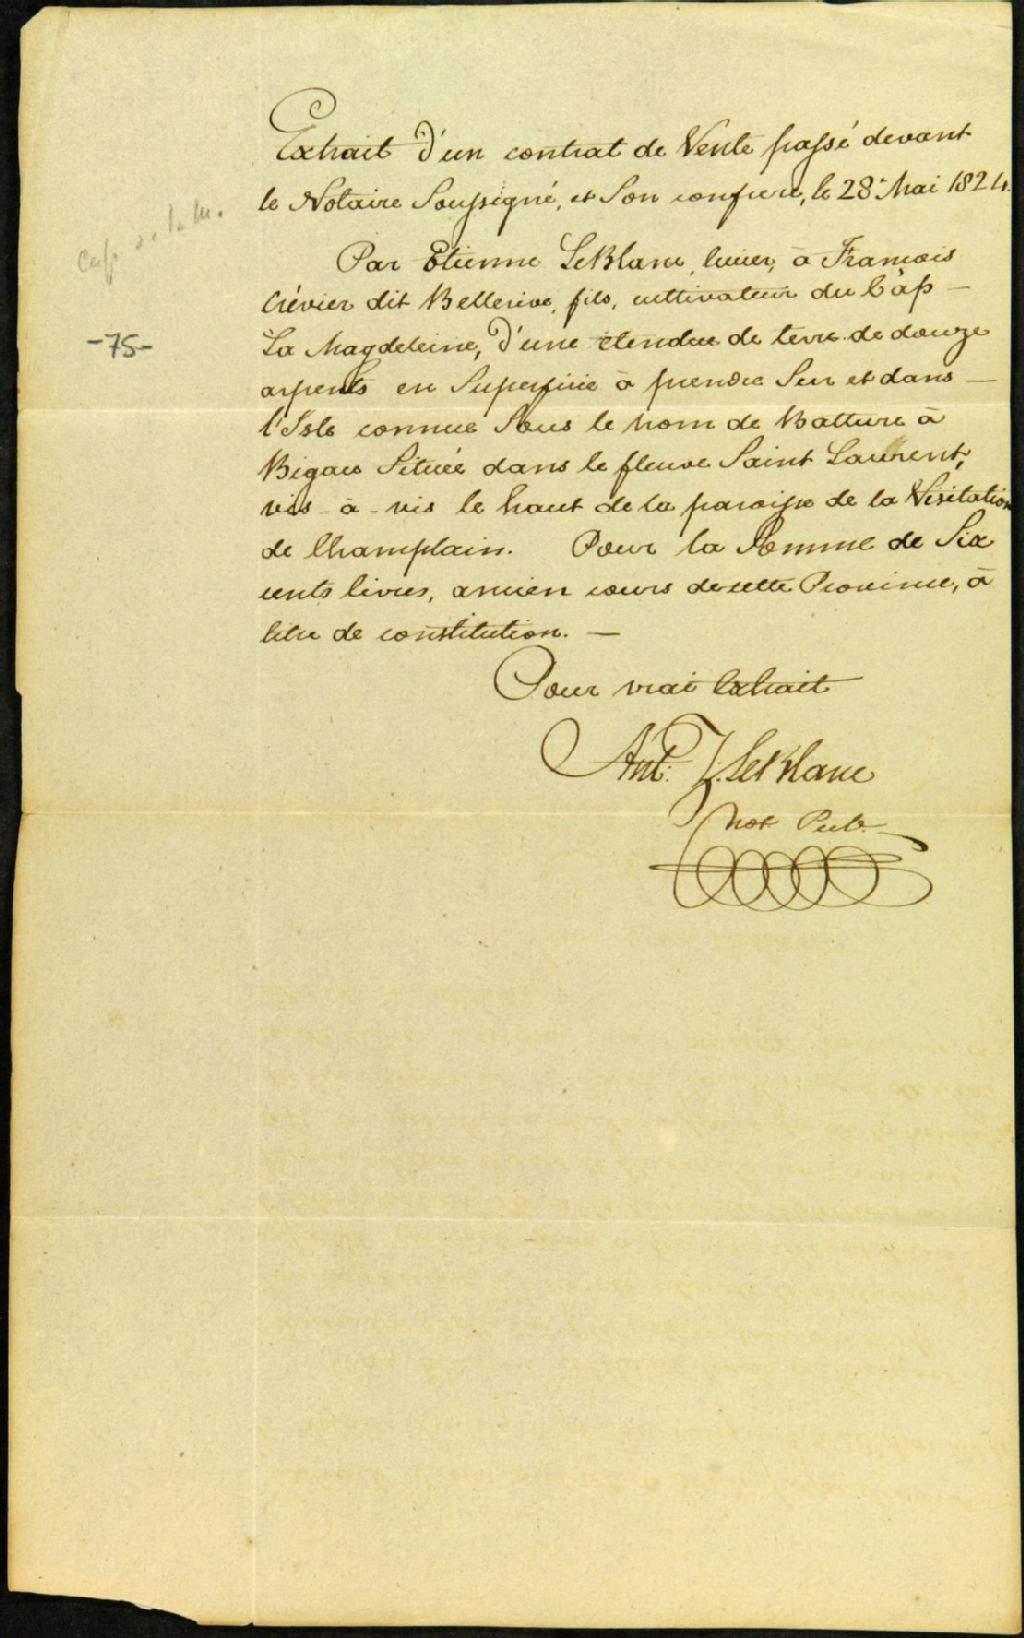 Extrait d'un contrat de Vente passé devant
le Notaire Soussigné, et Son confrere, le 28 Mai 1824.
Par Etienne LeBlanc, à Francois
Crévier dit Bellerive, fils, cultivateur du Cap
La Magdeleine, d'une etendue de terre de douze
arpents en Superficie à prendre Sur et dans
l'Isle connue Sous le nom de Batture à
Bigau Située dans le fleuve Saint Laurent,
vis - à - vis le haut de la paroisse de la Visitation
de Champlain. Pour la Somme de Six
cents livres, ancien cours de cette Province, à
titre de constitution. —
Pour vrai Extrait
Ant: Z. LeBlanc
Not. Pub.
Cap
-75-